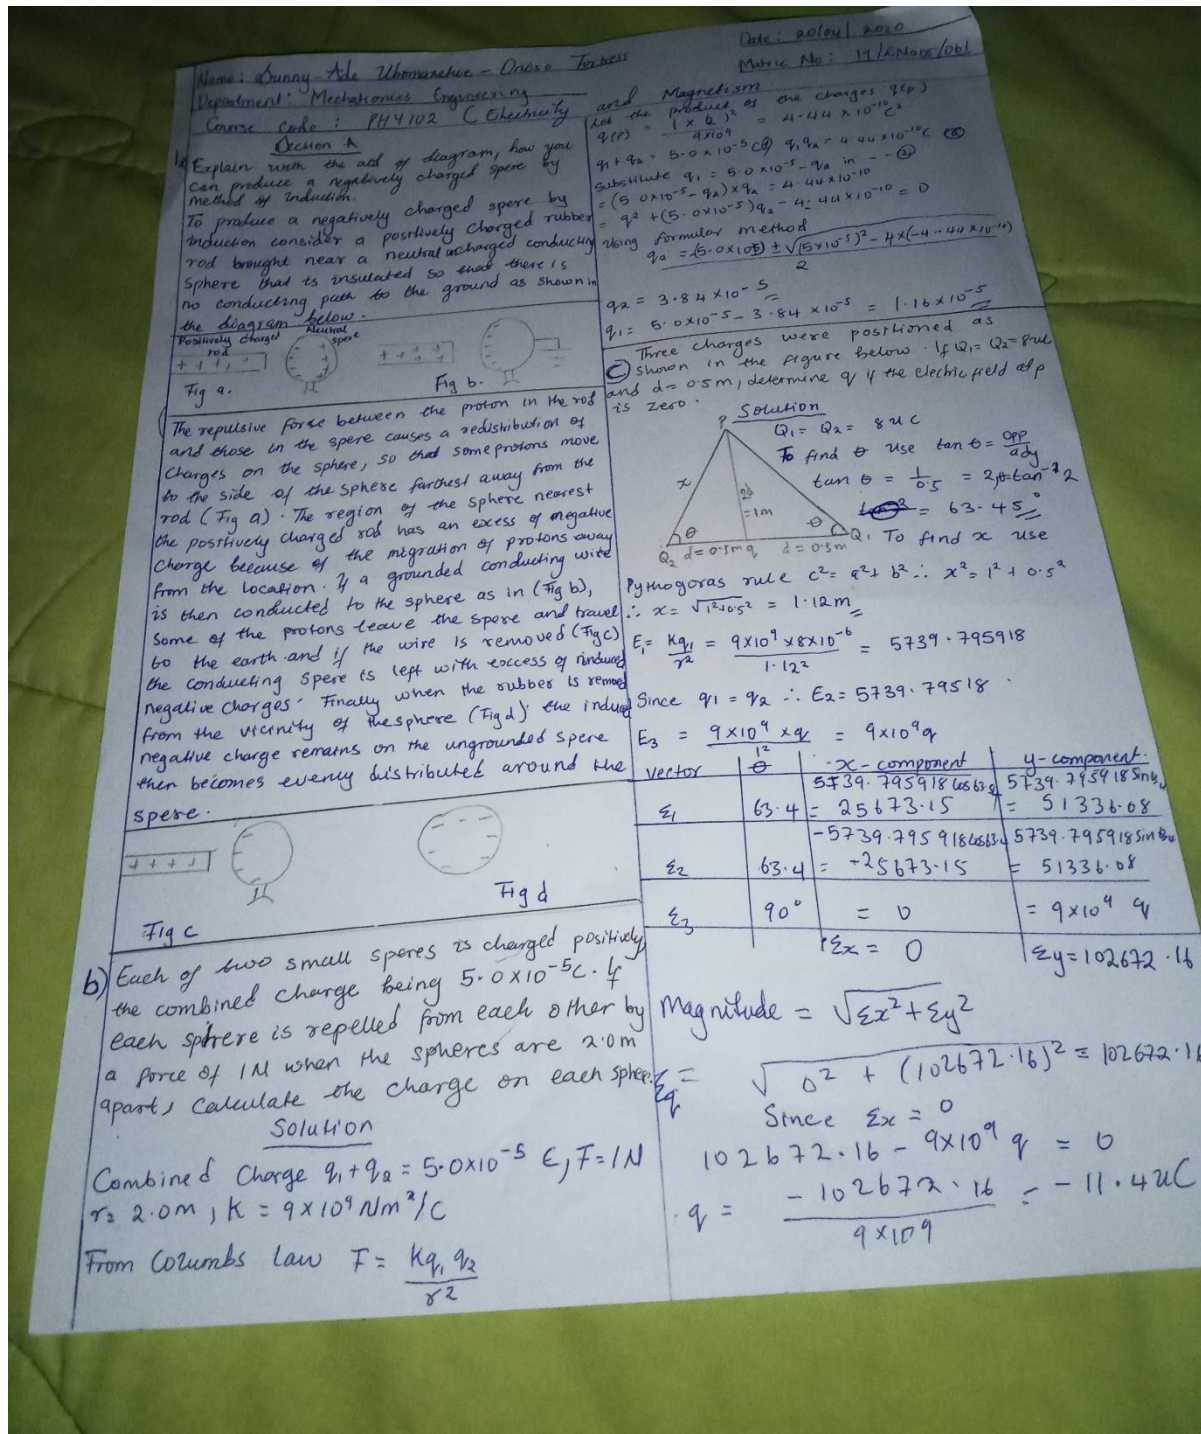 Date: 20/04/2020
Name: Sunny-Ade Ubomarehie-Onose Fortress
Matric No: 19/ENG05/061
Department: Mechatronics Engineering
Course code: PHY102 (Electricity and Magnetism
Section A
1a) Explain with the aid of diagram, how you
can produce a negatively charged spere by
method of Induction.
To produce a negatively charged spere by
induction consider a positively charged rubber
rod brought near a neutral uncharged conducting
sphere that is insulated so that there is
no conducting path to the ground as shown in
the diagram below.
Positively charged
rod
Neutral
spere
+ + + + +
Fig a.
+ + + +
Fig b.
The repulsive forse between the proton in the rod
and those in the spere causes a redistribution of
Charges on the sphere, so that some protons move
to the side of the sphere farthest away from the
rod (Fig a). The region of the sphere nearest
the positively charged rod has an excess of negative
Charge because of the migration of protons away
from the location. If a grounded conducting wire
is then conducted to the sphere as in (Fig b),
Some of the protons leave the spere and travel
to the earth and if the wire is removed (Fig c)
the conducting Spere is left with excess of induced
negative charges. Finally when the rubber is removed
from the vicinity of the sphere (Fig d) the induced
negative charge remains on the ungrounded spere
then becomes evenly distributed around the
spere.
+ + + +
Fig c
Fig d
b) Each of two small speres is charged positively
the combined charge being 5.0x10⁻⁵C. If
each sphere is repelled from each other by
a force of 1N when the spheres are 2.0m
apart, calculate the charge on each sphere.
Solution
Combined Charge q₁+q₂ = 5.0x10⁻⁵ C, F=1N
r= 2.0m, K = 9x10⁹ Nm²/C
From Columbs Law F = Kq₁q₂/r²
Let the product of the charges q(p)
q(p) = (1x2)²/9x10⁹ = 4.44x10⁻¹⁰C²
q₁+q₂ = 5.0x10⁻⁵C q₁q₂ = 4.44x10⁻¹⁰C
Substitute q₁ = 5.0x10⁻⁵-q₂ in --②
= (5.0x10⁻⁵-q₂)xq₂ = 4.44x10⁻¹⁰
= q² + (5.0x10⁻⁵)q₂ - 4.44x10⁻¹⁰ = 0
Using formular method
q₂ = -(5.0x10⁵) ± √(5x10⁻⁵)²-4x(-4.44x10⁻¹⁰)
2
q₂ = 3.84x10⁻⁵
q₁ = 5.0x10⁻⁵-3.84x10⁻⁵ = 1.16x10⁻⁵
C Three charges were positioned as
shown in the figure below. If Q₁=Q₂=8uc
and d=0.5m, determine q if the electric field at p
is zero.
Solution
Q₁=Q₂= 8uC
To find θ use tan θ = opp/adj
tan θ = 1/0.5 = 2, θ=tan⁻¹2
= 63.45°
P
x
2d
=1m
θ
θ
Q₂ d=0.5m q d=0.5m Q₁
To find x use
Pythogoras rule c²=a²+b² ∴ x²=1²+0.5²
∴ x=√1²+0.5² = 1.12m
E₁ = Kq₁/r² = 9x10⁹x8x10⁻⁶/1.12² = 5739.795918
Since q₁=q₂ ∴ E₂=5739.79518
E₃ = 9x10⁹xq/1² = 9x10⁹q
vector θ x-component y-component.
5739.795918cos63.4 5739.795918Sin63.4
ε₁ 63.4 = 25673.15 = 51336.08
-5739.795918cos63.4 5739.795918sin63.4
ε₂ 63.4 = -25673.15 = 51336.08
ε₃ 90° = 0 = 9x10⁹ q
Σx = 0 Σy=102672.16
Magnitude = √Σx²+Σy²
Eq = √0²+(102672.16)² = 102672.16
Since Σx = 0
102672.16-9x10⁹ q = 0
q = -102672.16/9x109 = -11.4uC